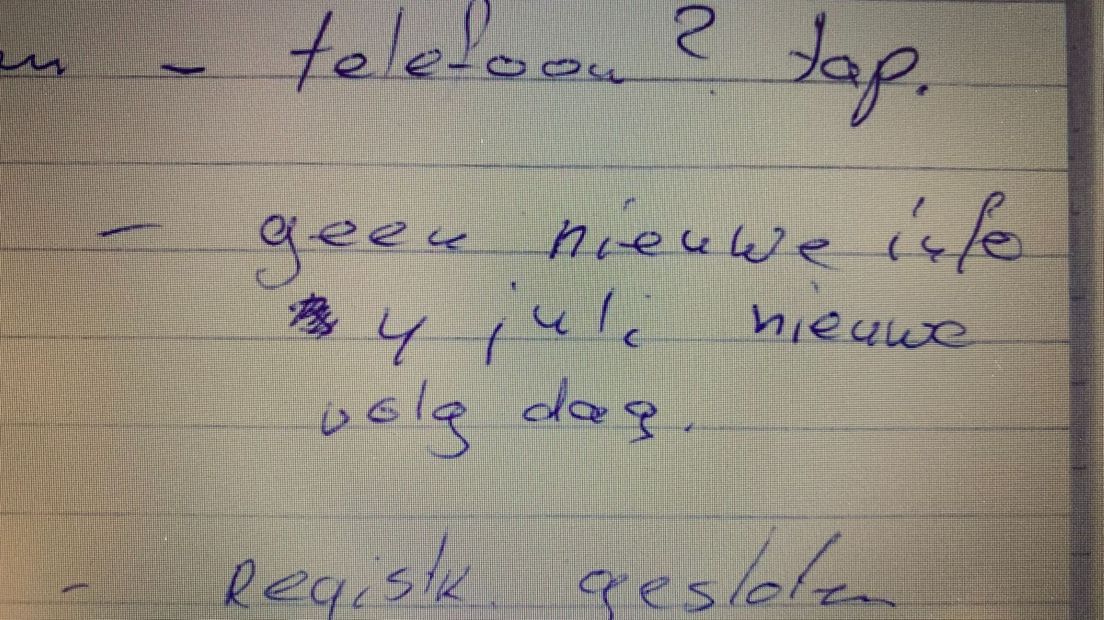 - telefoon ? tap.
- geen nieuwe info
4 juli nieuwe
volg dag.
- Registr. gesloten